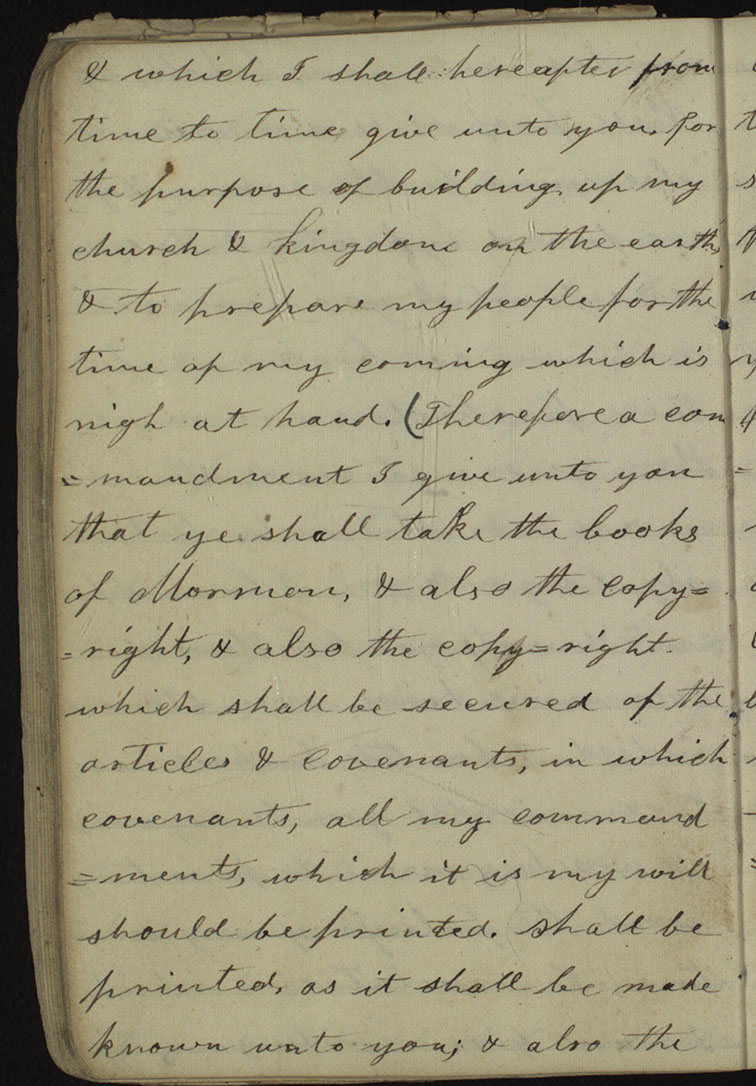 & which I shall hereafter from
time to time give unto you, for
the purpose of building up my
church & kingdom on the earth,
& to prepare my people for the
time of my coming which is
nigh at hand. (Therefore a com
=mandment I give unto you
that ye shall take the books
of Mormon, & also the copy=
=right, & also the copy=right
which shall be secured of the
articles & covenants, in which
covenants, all my command
=ments, which it is my will
should be printed. shall be
printed, as it shall be made
known unto you; & also the